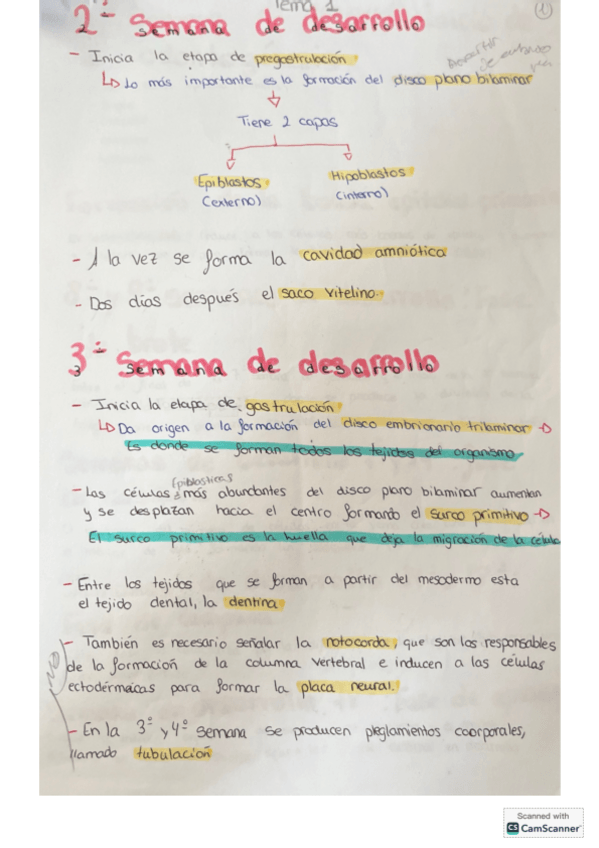 Tema 1
1
2ª Semana de desarrollo
- Inicia la etapa de pregastrulación
↳ Lo más importante es la formación del disco plano bilaminar
Tiene 2 capas
Epiblastos
(externo)
Hipoblastos
(interno)
- A la vez se forma la cavidad amniótica
- Dos días después el saco vitelino
3ª Semana de desarrollo
- Inicia la etapa de gastrulación
↳ Da origen a la formación del disco embrionario trilaminar →
Es donde se forman todos los tejidos del organismo
epiblásticas
- Las células más abundantes del disco plano bilaminar aumentan
y se desplazan hacia el centro formando el surco primitivo →
El surco primitivo es la huella que deja la migración de la célula
- Entre los tejidos que se forman a partir del mesodermo esta
el tejido dental, la dentina
- También es necesario señalar la notocorda, que son las responsables
de la formación de la columna vertebral e inducen a las células
ectodérmicas para formar la placa neural.
- En la 3º y 4º semana se producen plegamientos coorporales,
llamado tubulación
Scanned with
CS CamScanner